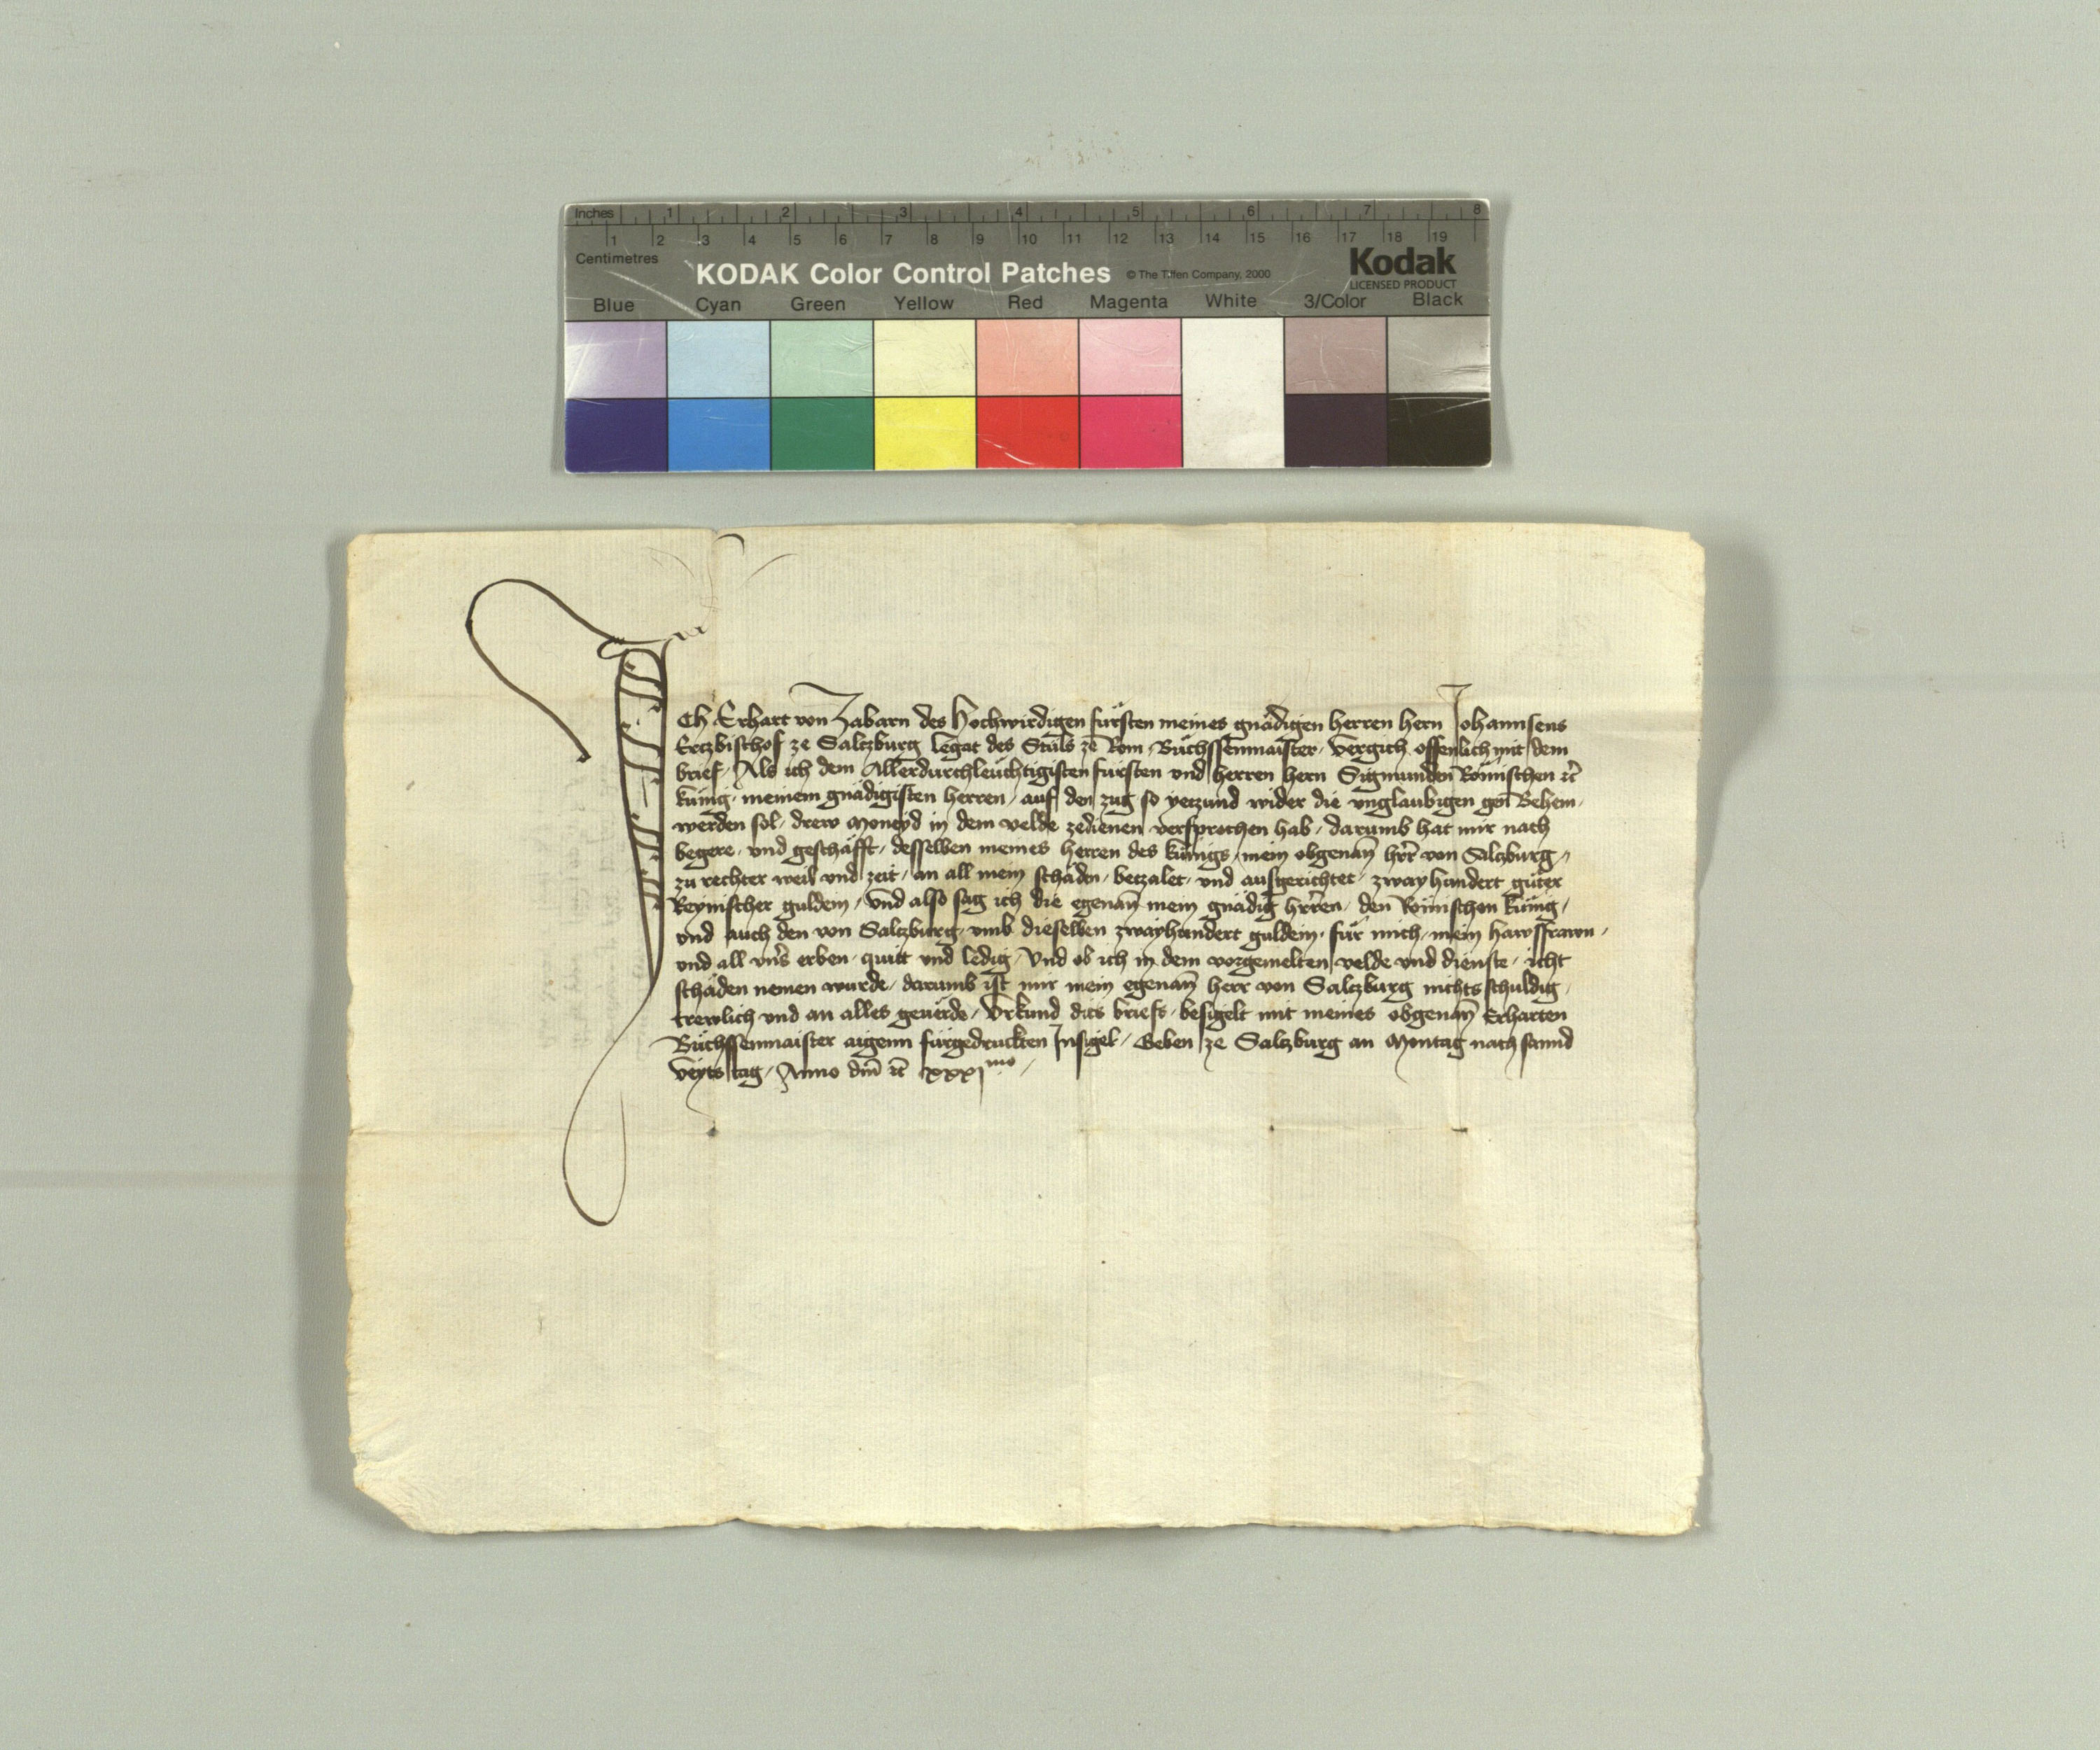 Inches 1 2 3 4 5 6 7 8
1 2 3 4 5 6 7 8 9 10 11 12 13 14 15 16 17 18 19
Centimetres
KODAK Color Control Patches © The Tiffen Company, 2000 Kodak
LICENSED PRODUCT
Blue Cyan Green Yellow Red Magenta White 3/Color Black
Ich Erhart von Zabarn des Hochwirdigen fürsten meines gnädigen herren hern Johannsens
Ertzbischof ze Saltzburg legat des Stůls ze Rom, Büchssenmaister, vergich offenlich mit dem
brief, Als ich dem Allerdurchleuchtigisten fürsten vnd herren hern Sigmunden Römischen ꝛc̄
künig, meinem gnädigisten herren, auf den zug so yetzund wider die vnglaubigen gen Behem,
werden sol, drew Moneyd in dem velde zedienen versprochen hab, darumb hat mir nach
begere, vnd geschäfft, desselben meines herren des künigs, mein obgenan̄ her̄r von Saltzburg,
zu rechter weil vnd zeit, an all mein schäden, betzalet, vnd ausgerichtet, zwayhundert guter
Reynischer guldein, Vnd also sag ich die egenan̄ mein gnädig hr̄ren, den Römischen künig,
vnd auch den von Saltzburg, vmb dieselben zwayhundert guldein, für mich, mein hawsfrawn,
vnd all vns̄ erben, quitt vnd ledig, Vnd ob ich in dem vorgemelten velde vnd dienste, icht
schäden nemen wurde, darumb ist mir mein egenan̄ herr von Saltzburg nichts schuldig,
trewlich vnd an alles geuerde, Vrkund ditz briefs, besigelt mit meines obgenan̄ Erharten
Büchssenmaister aigenn fürgedruckten Insigel, Geben ze Saltzburg an Montag nach sannd
Veyts tag, Anno dm̄ ꝛc̄ xxxjmo,